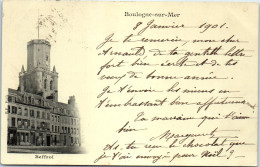 Boulogne-sur-Mer
8 Janvier 1901.
Je te remercie, mon cher
Armand de ta gentille lettre
fort bien écrite et de tes
vœux de bonne année.
Je t'envoie les miens en
t'embrassant bien affectueusement
Ta marraine qui t'aime
bien
As-tu reçu le chocolat que
je t'ai envoyé pour Noël ?
Beffroi